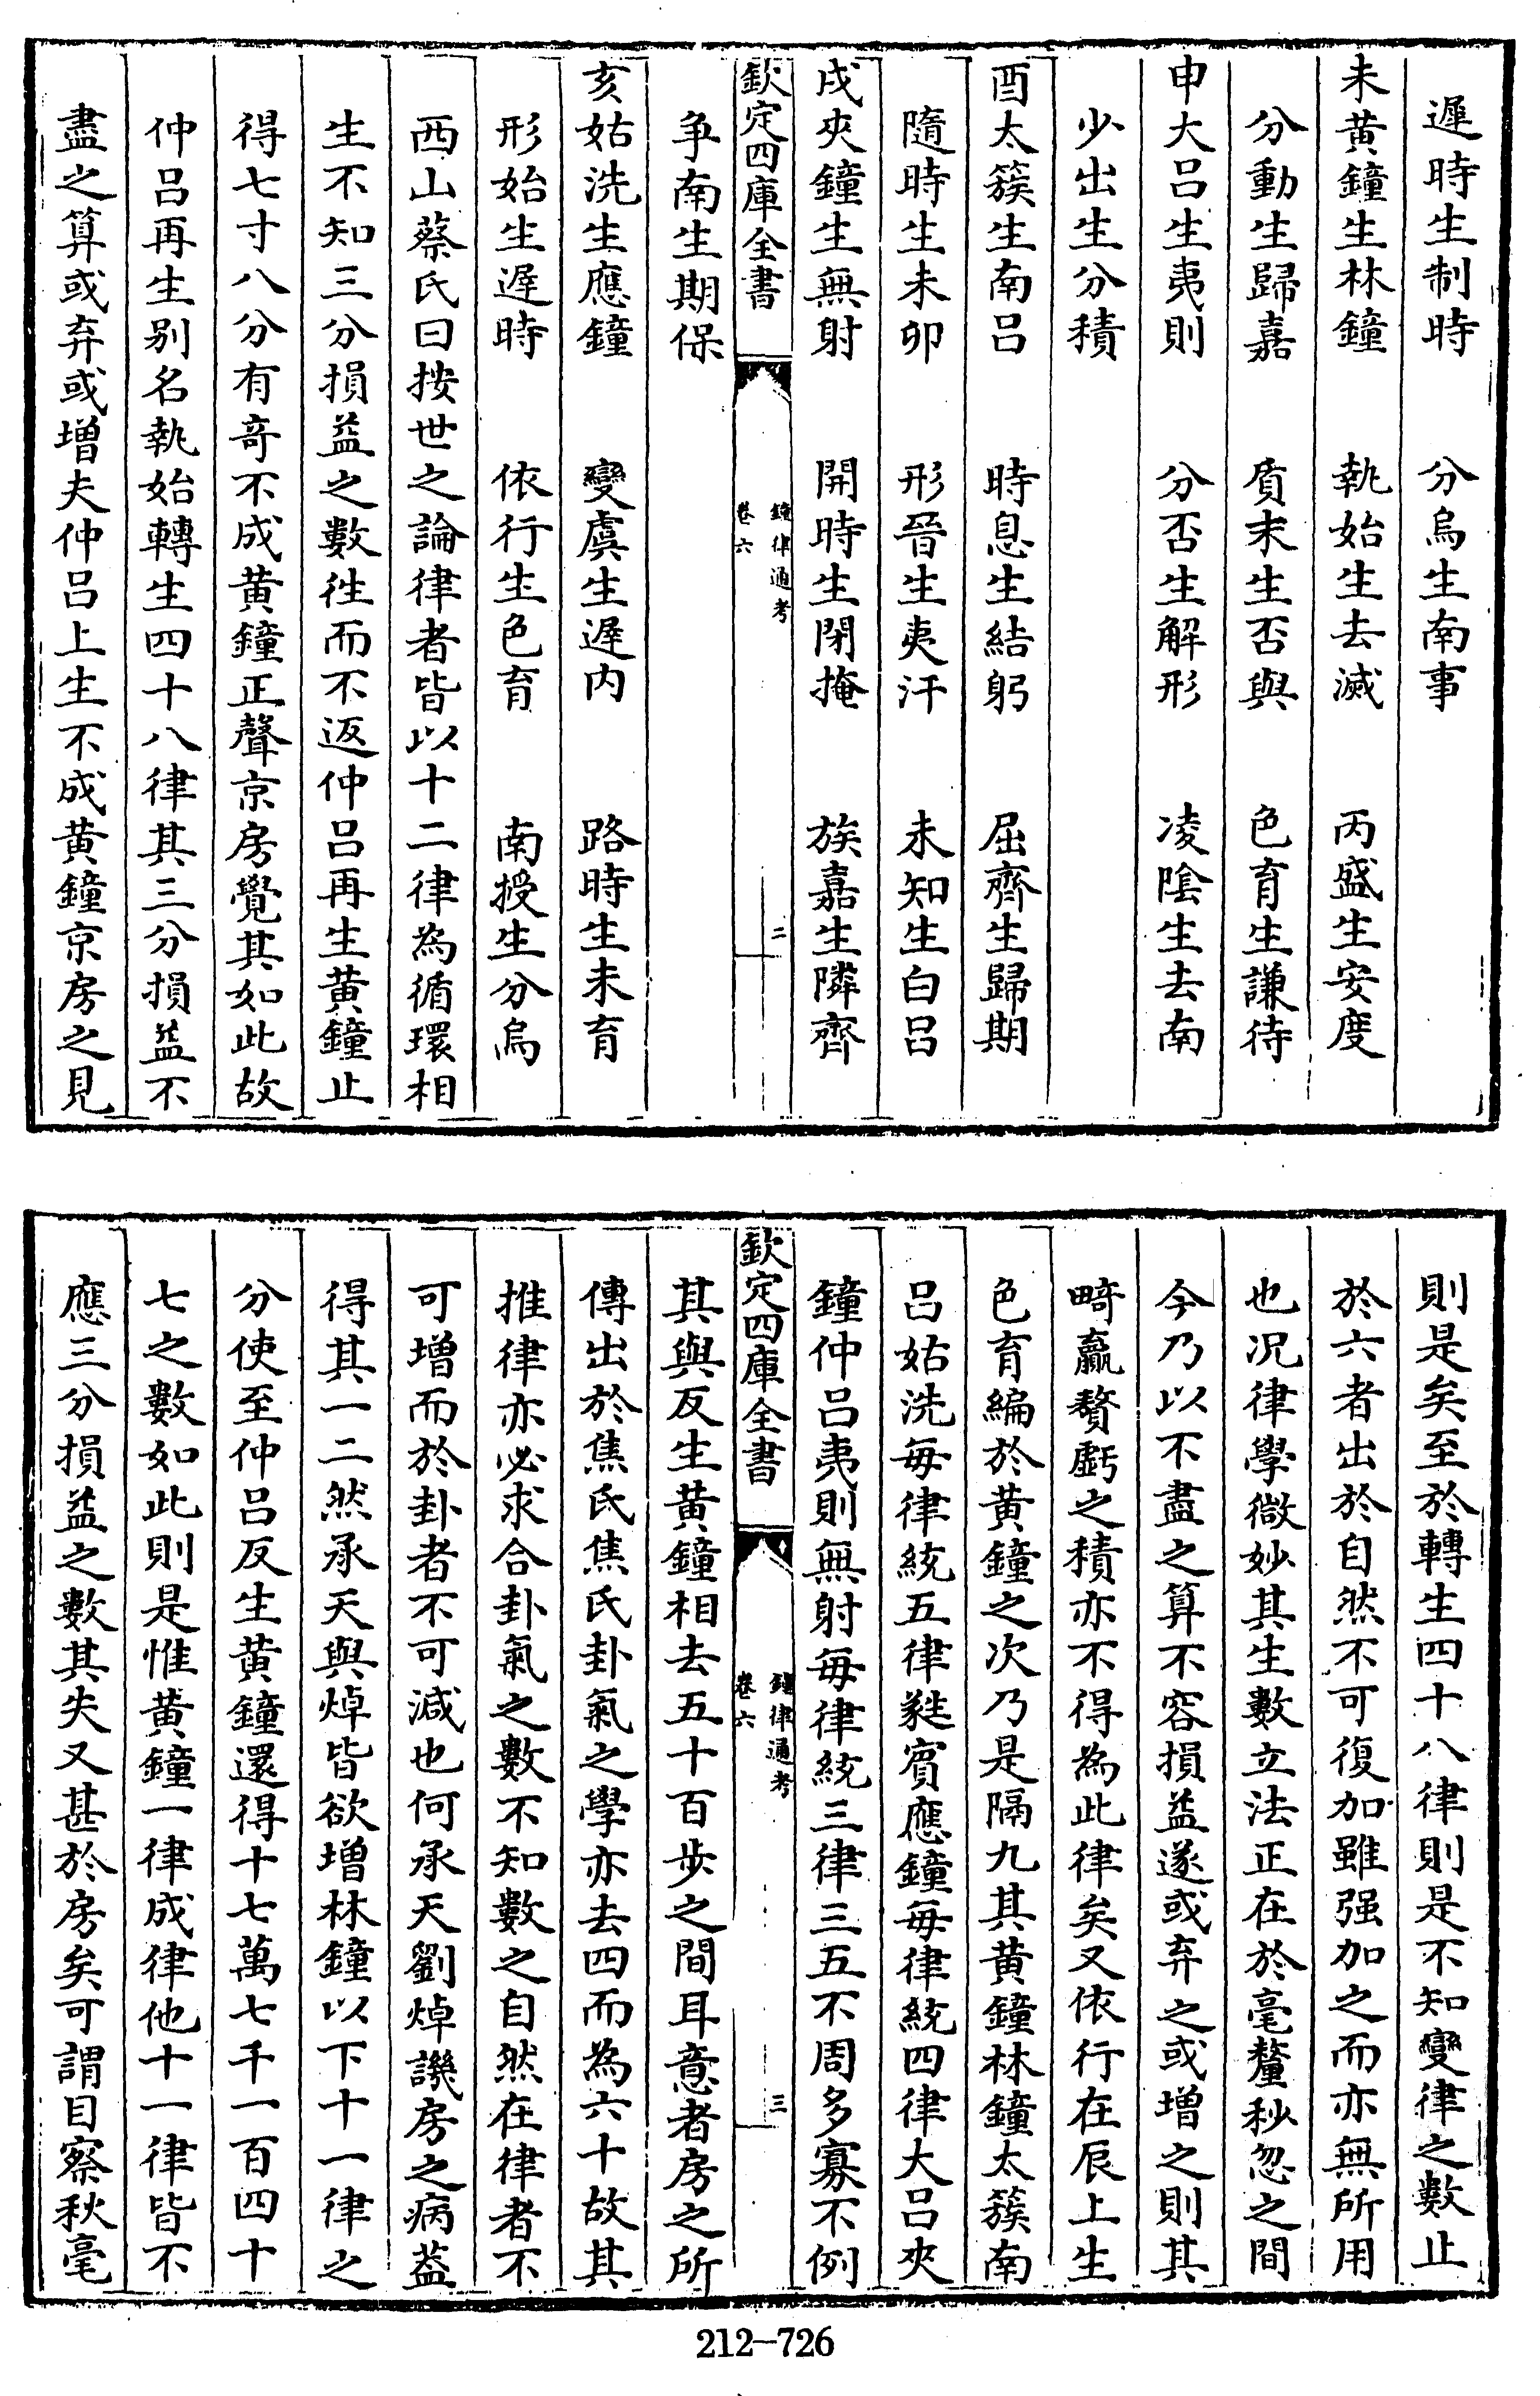 遲時生制時　分烏生南事
未黄鐘生林鐘　執始生去滅　丙盛生安度
分動生歸嘉　質末生否與　色育生謙待
申大吕生夷則　分否生解形　凌陰生去南
少出生分積
酉太簇生南吕　時息生結躬　屈齊生歸期
隨時生未卯　形晉生夷汗　未知生白吕
戌夾鐘生無射　開時生閉掩　族嘉生隣齊
欽定四庫全書　鐘律通考　卷六　二
爭南生期保
亥姑洗生應鐘　變虞生遲内　路時生未育
形始生遲時　依行生色育　南授生分烏
西山蔡氏曰按世之論律者皆以十二律為循環相
生不知三分損益之數徃而不返仲吕再生黄鐘止
得七寸八分有竒不成黄鐘正聲京房覺其如此故
仲吕再生别名執始轉生四十八律其三分損益不
盡之算或弃或增夫仲吕上生不成黄鐘京房之見
則是矣至於轉生四十八律則是不知變律之數止
於六者出於自然不可復加雖强加之而亦無所用
也况律學微妙其生數立法正在於毫釐秒忽之間
今乃以不盡之算不容損益遂或弃之或增之則其
畸贏贅虧之積亦不得為此律矣又依行在辰上生
色育編於黄鐘之次乃是隔九其黄鐘林鐘太簇南
吕姑洗毎律統五律蕤賓應鐘毎律統四律大吕夾
鐘仲吕夷則無射毎律統三律三五不周多寡不例
欽定四庫全書　鐘律通考　卷六　三
其與反生黄鐘相去五十百步之間耳意者房之所
傳出於焦氏焦氏卦氣之學亦去四而為六十故其
推律亦必求合卦氣之數不知數之自然在律者不
可增而於卦者不可減也何承天劉焯譏房之病葢
得其一二然承天與焯皆欲增林鐘以下十一律之
分使至仲吕反生黄鐘還得十七萬七千一百四十
七之數如此則是惟黄鐘一律成律他十一律皆不
應三分損益之數其失又甚於房矣可謂目察秋毫
212-726